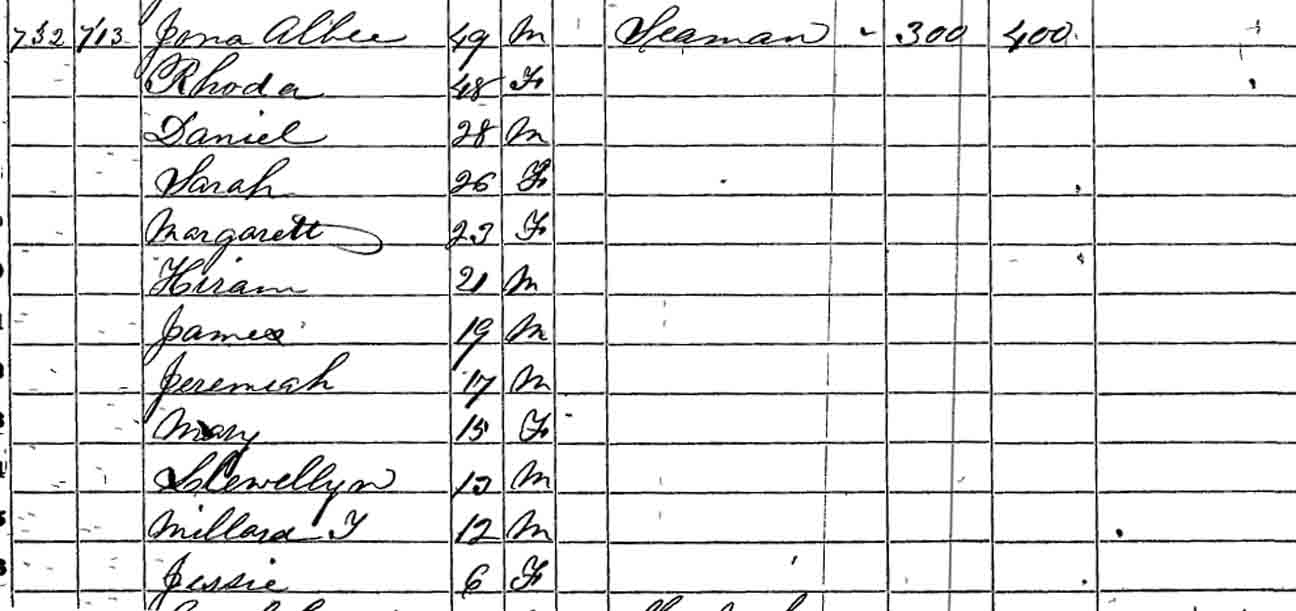 732 713 Jona Albee 49 M Seaman 300 400
Rhoda 48 F
Daniel 28 M
Sarah 26 F
Margarett 23 F
Hiram 21 M
James 19 M
Jeremiah 17 M
Mary 15 F
Llewellyn 13 M
Millard F 12 M
Jessie 6 F